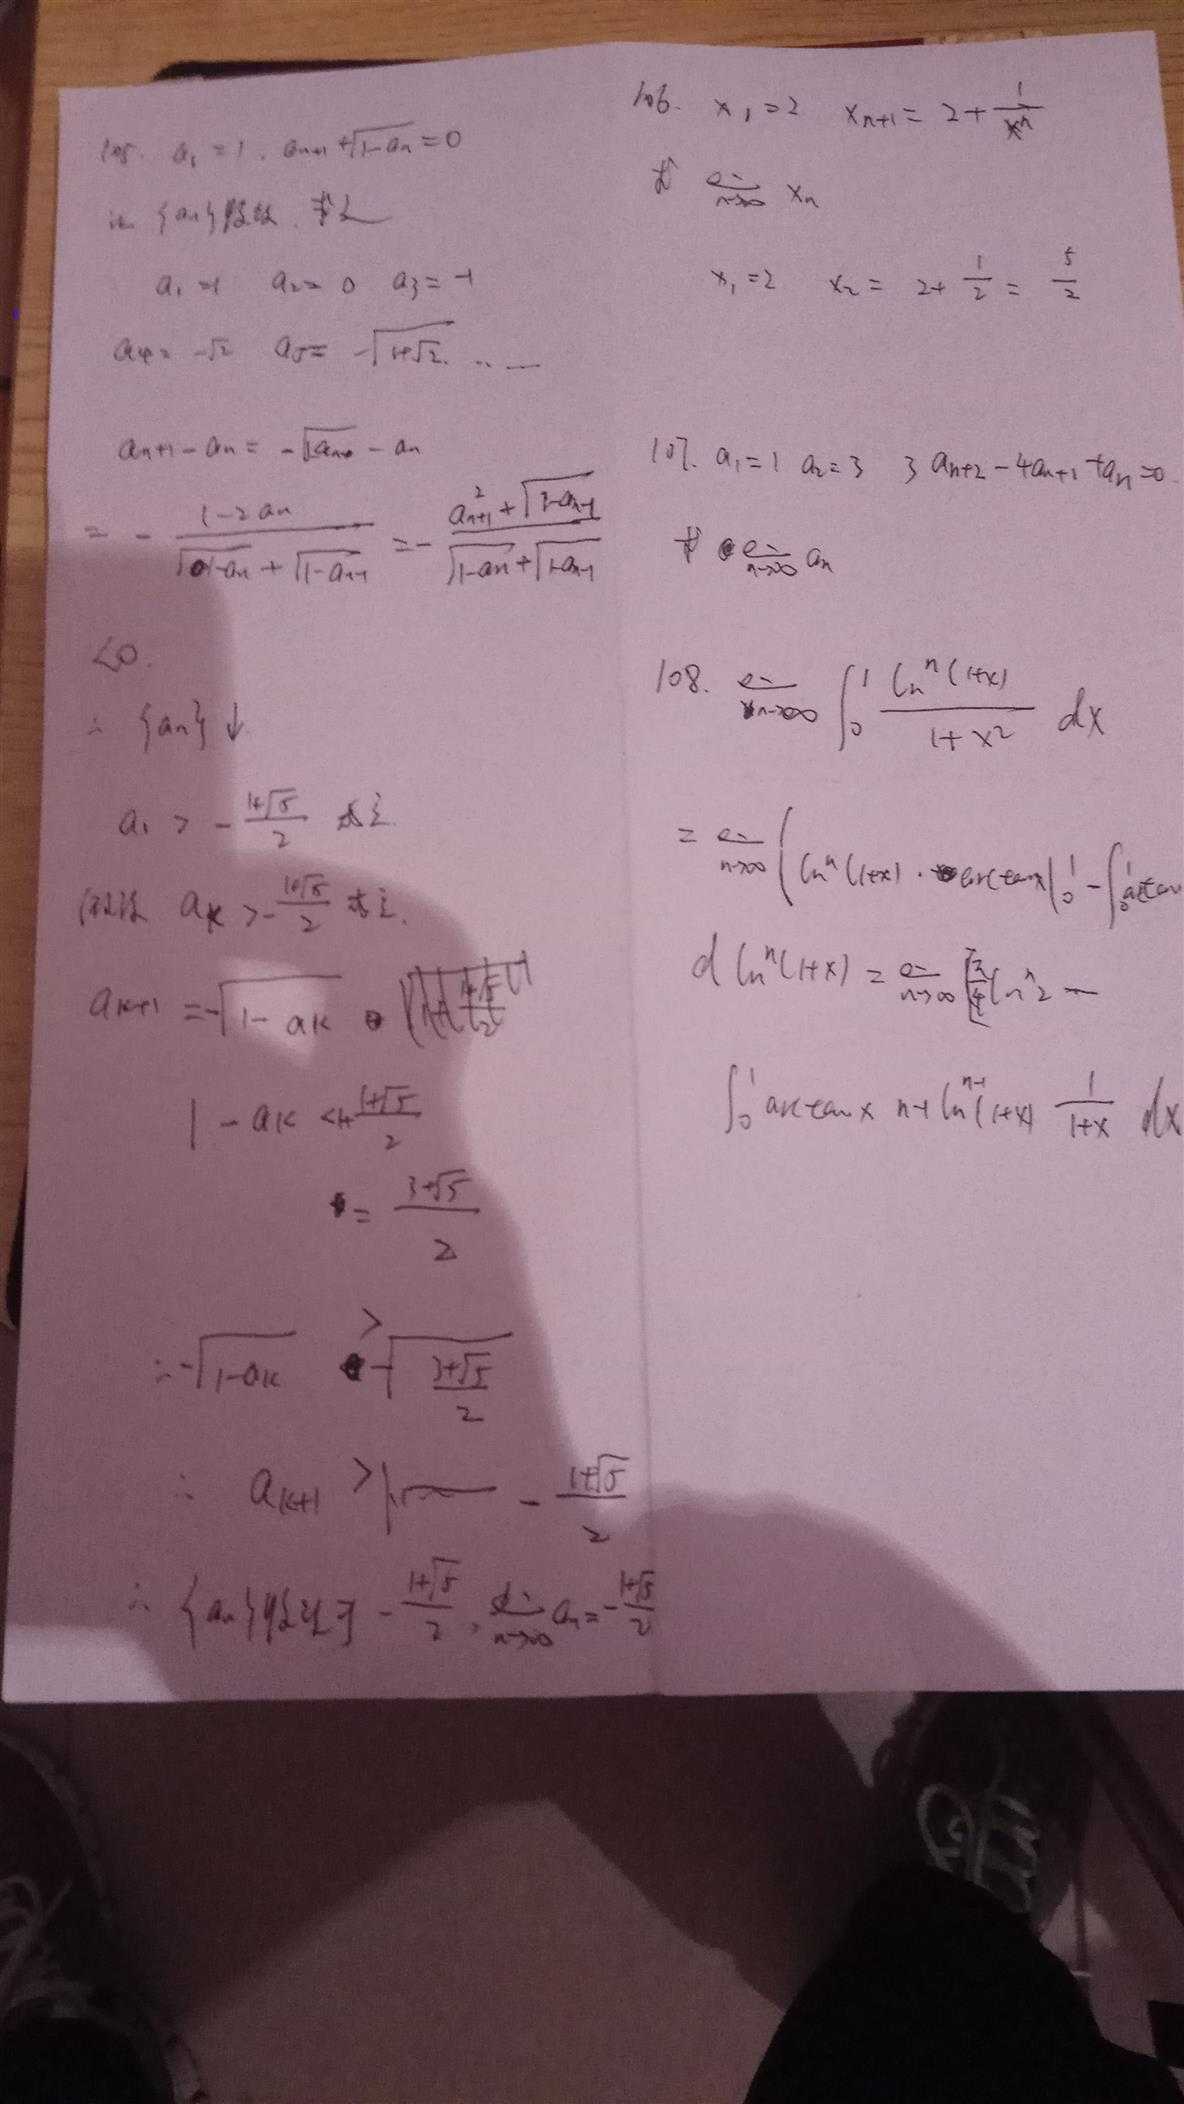 105. a₁=1, aₙ₊₁+√(1-aₙ)=0
证 {aₙ}收敛, 求之
a₁=1 a₂=0 a₃=-1
a₄=-√2 a₅=-√(1+√2) ……
aₙ₊₁-aₙ=-√(1-aₙ)-aₙ
=-(1-2aₙ)/(√(1-aₙ)+√(1-aₙ₋₁))=-(a²ₙ₊₁+√(1-aₙ₋₁))/(√(1-aₙ)+√(1-aₙ₋₁))
<0.
∴ {aₙ}↓
a₁>-(1+√5)/2 成立.
假设 aₖ>-(1+√5)/2 成立.
aₖ₊₁=-√(1-aₖ)
1-aₖ<1+(1+√5)/2
=(3+√5)/2
∴-√(1-aₖ) > -√((3+√5)/2)
∴ aₖ₊₁> -(1+√5)/2
∴ {aₙ}收敛于-(1+√5)/2, lim n→∞ aₙ=-(1+√5)/2
106. x₁=2 xₙ₊₁=2+1/xₙ
求 lim n→∞ xₙ
x₁=2 x₂=2+1/2=5/2
107. a₁=1 a₂=3 3aₙ₊₂-4aₙ₊₁+aₙ=0.
求 lim n→∞ aₙ
108. lim n→∞ ∫₀¹ lnⁿ(1+x)/(1+x²) dx
= lim n→∞ (lnⁿ(1+x)·arctanx|₀¹-∫₀¹arctan
d lnⁿ(1+x)=lim n→∞ [π/4 lnⁿ2-
∫₀¹ arctanx n-1 lnⁿ⁻¹(1+x) 1/(1+x) dx